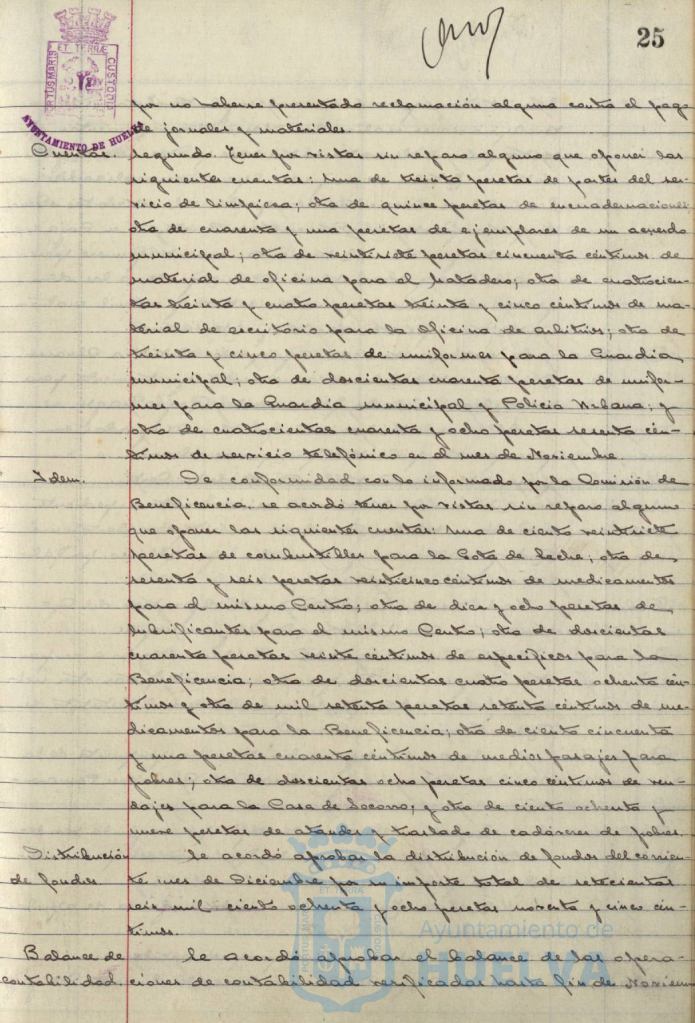 25
PORTUS MARIS ET TERRÆ CUSTODIA
AYUNTAMIENTO DE HUELVA
por no haberse presentado reclamación alguna contra el pago
de jornales y materiales.
Cuentas. Segundo. Tener por vistas sin reparo alguno que oponer las
siguientes cuentas: Una de treinta pesetas de partes del ser-
vicio de limpieza; otra de quince pesetas de encuadernaciones
otra de cuarenta y una pesetas de ejemplares de un acuerdo
municipal; otra de veintisiete pesetas cincuenta céntimos de
material de oficina para el Matadero; otra de cuatrocien-
tas treinta y cuatro pesetas treinta y cinco céntimos de ma-
terial de escritorio para la oficina de arbitrios; otra de
treinta y cinco pesetas de uniformes para la Guardia
municipal; otra de doscientas cuarenta pesetas de unifor-
mes para la Guardia municipal y Policía Urbana; y
otra de cuatrocientas cuarenta y ocho pesetas sesenta cén-
timos de servicio telefónico en el mes de Noviembre.
Idem. De conformidad con lo informado por la Comisión de
Beneficencia, se acordó tener por vistas sin reparo alguno
que oponer las siguientes cuentas: Una de ciento veintisiete
pesetas de combustibles para la Gota de Leche; otra de
sesenta y seis pesetas veinticinco céntimos de medicamentos
para el mismo Centro; otra de diez y ocho pesetas de
lubrificantes para el mismo Centro; otra de doscientas
cuarenta pesetas veinte céntimos de específicos para la
Beneficencia; otra de doscientas cuatro pesetas ochenta cén-
timos y otra de mil setenta pesetas setenta céntimos de me-
dicamentos para la Beneficencia; otra de ciento cincuenta
y una pesetas cuarenta céntimos de medios pasajes para
pobres; otra de doscientas ocho pesetas cinco céntimos de ven-
dajes para la Casa de Socorro; y otra de ciento ochenta y
nueve pesetas de ataudes y traslado de cadáveres de pobres.
Distribución Se acordó aprobar la distribución de fondos del corrien-
de fondos te mes de Diciembre por su importe total de setecientas
seis mil ciento ochenta y ocho pesetas noventa y cinco cén-
timos.
Balance de Se acordó aprobar el balance de las opera-
contabilidad. ciones de contabilidad verificadas hasta fin de Noviem
Ayuntamiento de
HUELVA